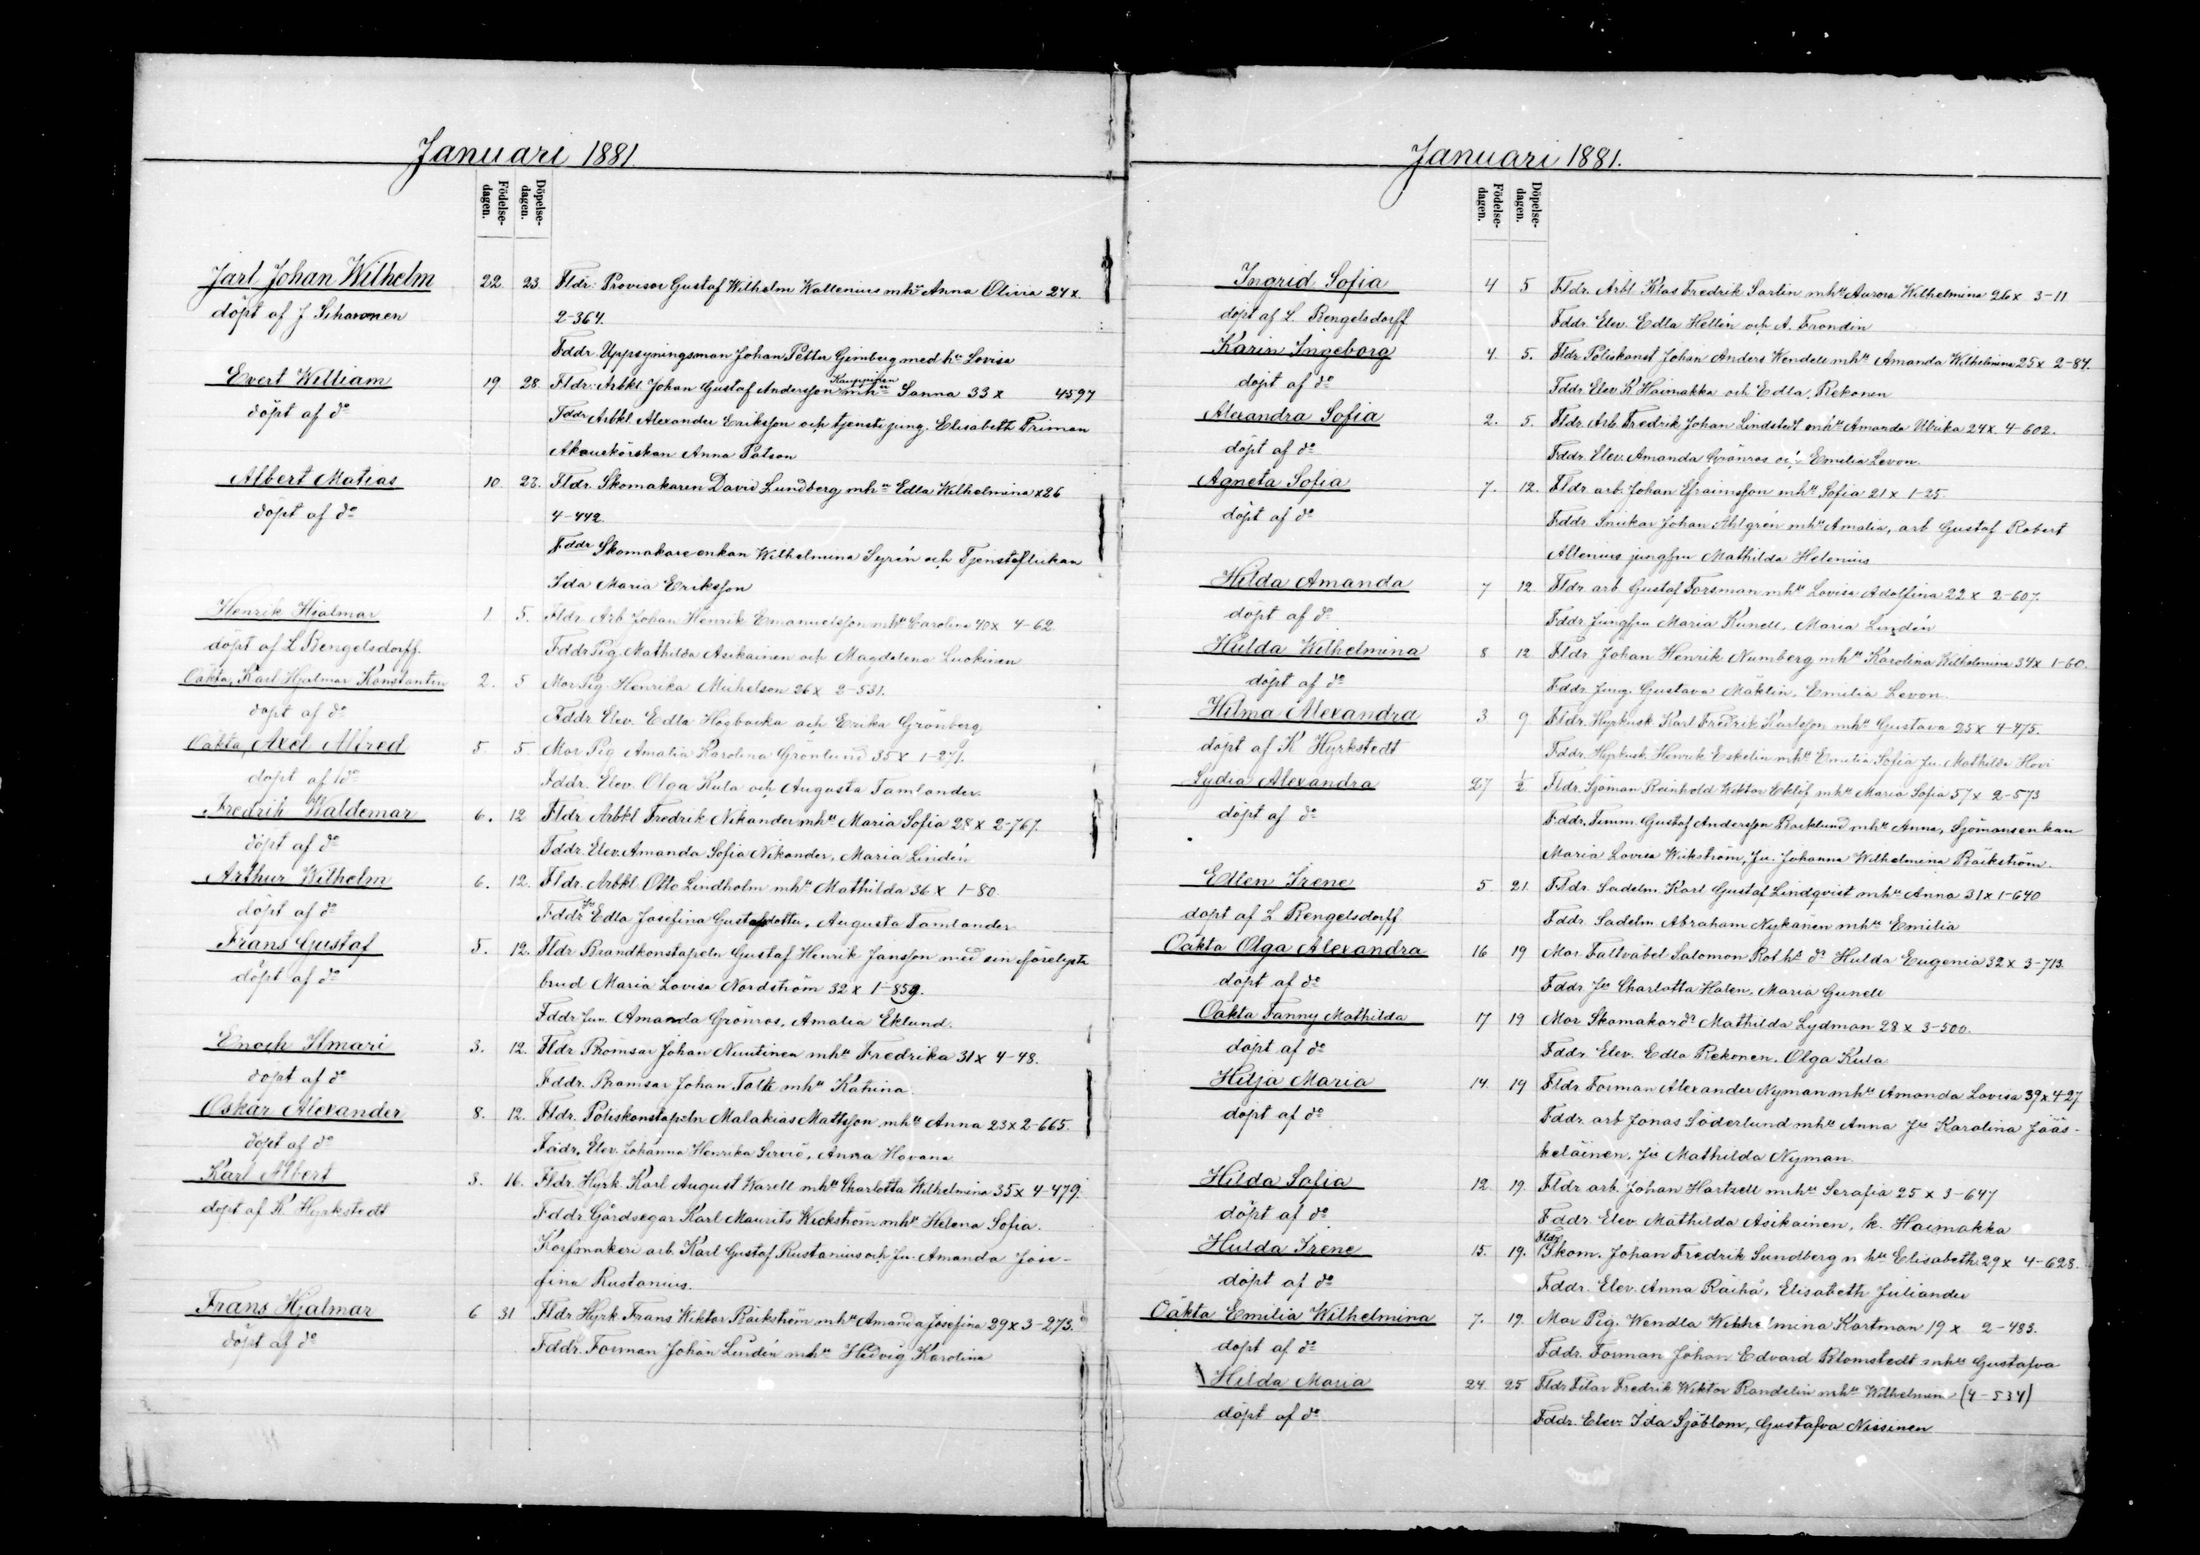 Januari 1881.
Födelse-
dagen.
Döpelse-
dagen.
Jarl Johan Wilhelm 22 23. Fldr: Provisor Gustaf Wilhelm Wallenius mhu Anna Olivia 24 x.
döpt af J 2-364.
Fddr. Uppsyningsman Johan Petter Gimberg med hu Lovisa
Evert William 19 28. Fldr: Arbkl. Johan Gustaf Andersson mhu Sanna 33 x 4597
döpt af do Fddr. Arbkl. Alexander Eriksson och tjenste jung. Elisabeth Friman
Anna Patson
Albert Matias 10 23. Fldr. Skomakaren David Lundberg mhu Edla Wilhelmina x 26
döpt af do 4-442.
Fddr Skomakare enkan Wilhelmina Syrén och Tjensteflickan
Ida Maria Eriksson
Henrik Hjalmar 1. 5. Fldr. Arb. Johan Henrik Emanuelsson mhu Carolina 40 x 4-62
döpt af L Bengelsdorff. Fddr Pig. Mathilda Asikainen och Magdalena Luokinen
Oäkta, Karl Hjalmar Konstantin 2. 5 Mor Pig. Henrika Michelson 26 x 2-531.
döpt af do Fddr. Elev. Edla Hogbacka och Erika Grönberg
Oäkta, Axel Alfred 5. 5. Mor Pig Amalia Karolina Grönlund 35 x 1-271.
döpt af do Fddr. Elev. Olga Kula och Augusta Tamlander.
Fredrik Waldemar 6. 12 Fldr Arbkl Fredrik Nikander mhu Maria Sofia 28 x 2-767.
döpt af do Fddr. Elev. Amanda Sofia Nikander, Maria Lindén
Arthur Wilhelm 6. 12. Fldr. Arbkl Otto Lindholm mhu Mathilda 36 x 1-80.
döpt af do Fddr Ju Edla Josefina Gustafsdotter, Augusta Tamlander
Frans Gustaf 5. 12. Fldr Brandkonstapeln Gustaf Henrik Jansson med sin förelysta
döpt af do brud Maria Lovisa Nordström 32 x 1-859.
Fddr Jun. Amanda Grönros, Amalia Eklund.
Enoch Ilmari 3. 12. Fldr Bromsar Johan Nuutinen mhu Fredrika 31 x 4-48.
döpt af do Fddr. Bromsar Johan Talk mhu Katrina
Oskar Alexander 8. 12. Fldr. Poliskonstapeln Malakias Mattsson mhu Anna 23 x 2-665.
döpt af do Fddr. Elev. Johanna Henrika Servio, Anna Havana
Karl Albert 3. 16. Fldr. Hyrk. Karl August Warell mhu Charlotta Wilhelmina 35 x 4-479.
döpt af K Hyrkstedt Fddr Gårdsegar Karl Maurits Wickström mhu Helena Sofia.
Korfmakeri arb. Karl Gustaf Rustanius och Ju. Amanda Jose-
fina Rustanius.
Frans Hjalmar 6 31 Fldr Hyrk. Frans Wiktor Bäckström mhu Amanda Josefina 29 x 3-273.
döpt af do Fddr. Forman Johan Lindén mhu Hedvig Karolina
Januari 1881.
Födelse-
dagen.
Döpelse-
dagen.
Ingrid Sofia 4 5 Fldr. Arbl Klas Fredrik Sarlin mhu Aurora Wilhelmina 26 x 3-11
döpt af L. Bengelsdorff Fddr. Elev. Edla Hellén och A. Frondin
Karin Ingeborg 4. 5. Fldr. Poliskonst Johan Anders Wendell mhu Amanda Wilhelmina 25 x 2-84.
döpt af do Fddr. Elev. K Haimakka och Edla Rekonen
Alexandra Sofia 2. 5. Fldr. Arb. Fredrik Johan Lindstedt mhu Amanda Ulrika 24 x 4-602.
döpt af do Fddr. Elev. Amanda Grönros och Emilia Levon.
Agneta Sofia 7. 12. Fldr arb. Johan Efraimsson mhu Sofia 21 x 1-25.
döpt af do Fddr. Snickar Johan Ahlgrén mhu Amalia, arb Gustaf Robert
Allenius jungfru Mathilda Helenius
Hilda Amanda 7 12 Fldr. arb Gustaf Forsman mhu Lovisa Adolfina 22 x 2-607.
döpt af do Fddr. Jungfru Maria Kunell, Maria Lindén
Hulda Wilhelmina 8 12 Fldr. Johan Henrik Numberg mhu Karolina Wilhelmina 34 x 1-60.
döpt af do Fddr. Jung. Gustava Mäklin, Emilia Levon.
Hilma Alexandra 3 9 Fldr. Hyrkusk Karl Fredrik Karlsson mhu Gustava 25 x 4-475.
döpt af K Hyrkstedt Fddr. Hyrkusk. Henrik Eskelin mhu Emilia Sofia Ju. Mathilda Hovi
Lydia Alexandra 27 1/2 Fldr. Sjöman Reinhold Wiktor Wiklöf mhu Maria Sofia 57 x 2-573
döpt af do Fddr. Timm. Gustaf Andersson Backlund mhu Anna, Sjömansenkan
Maria Lovisa Wickström, Ju. Johanna Wilhelmina Bäckström.
Edlen Irene 5 21 Fldr. Sadelm. Karl Gustaf Lindqvist mhu Anna 31 x 1-640
döpt af L Bengelsdorff Fddr. Sadelm Abraham Nykänen mhu Emilia
Oäkta Olga Alexandra 16 19 Mor Fältväbel Salomon Roths dr Hulda Eugenia 32 x 3-713.
döpt af do Fddr. Ju Charlotta Halen, Maria Gunell
Oäkta Fanny Mathilda 17 19 Mor Skomakar dr Mathilda Lydman 28 x 3-500.
döpt af do Fddr. Elev. Edla Rekonen, Olga Kula
Hilja Maria 14. 19 Fldr Forman Alexander Nyman mhu Amanda Lovisa 39 x 4-27
döpt af do Fddr. arb Jonas Söderlund mhu Anna Ju Karolina Jääs-
keläinen, Ju Mathilda Nyman.
Hilda Sofia 12 19. Fldr arb. Johan Hartzell mhu Serafia 25 x 3-647
döpt af do Fddr. Elev. Mathilda Asikainen, K. Haimakka
Hulda Irene 15. 19. Fldr Skom. Johan Fredrik Sundberg mhu Elisabeth 29 x 4-628.
döpt af do Fddr. Elev. Anna Räihä, Elisabeth Juliander
Oäkta Emilia Wilhelmina 7. 19. Mor Pig. Wendla Wilhelmina Kartman 19 x 2-483.
döpt af do Fddr. Forman Johan Edvard Blomstedt mhu Gustafva
Hilda Maria 24. 25 Fldr Filar Fredrik Wiktor Randelin mhu Wilhelmin (4-534)
döpt af do Fddr. Elev. Ida Sjöblom, Gustafva Nissinen